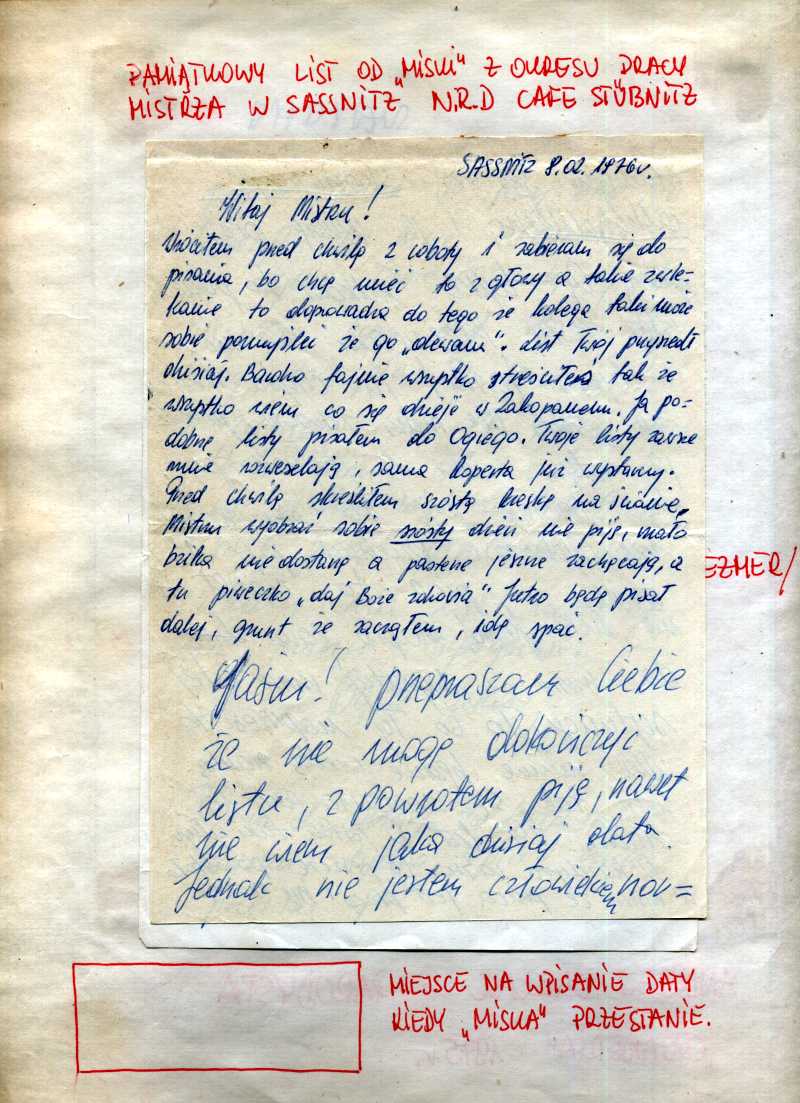 PAMIĄTKOWY LIST OD „MISKI" Z OKRESU PRACY
MISTRZA W SASSNITZ N.R.D CAFE STÜBNITZ
SASSNITZ 8.02.1976r.
Witaj Mistrzu!
Wróciłem przed chwilą z roboty i zabieram się do
pisania, bo chcę mieć to z głowy a takie zwle-
kanie to doprowadza do tego że kolega taki może
sobie pomyśleć że go „olewam". List Twój przyszedł
dzisiaj. Bardzo fajnie wszystko streściłeś tak że
wszystko wiem co się dzieje w Zakopanem. Ja po=
dobne listy pisałem do Ogiego. Twoje listy zawsze
mnie rozweselają, sama koperta już wystarczy.
Przed chwilą skreśliłem szóstą kreskę na ścianie,
Mistrzu wyobraź sobie szósty dzień nie piję, mało
bzika nie dostanę a jeszcze zachęcają, a
tu piweczko „daj Boże zdrowia" Jutro będę pisał
dalej, grunt że zacząłem, idę spać.
Jasiu! przepraszam Ciebie
że nie mogę dokończyć
listu, z powrotem piję, nawet
nie wiem jaka dzisiaj data.
Jednak nie jestem człowiekiem nor=
EZMER/
MIEJSCE NA WPISANIE DATY
KIEDY „MISKA" PRZESTANIE.